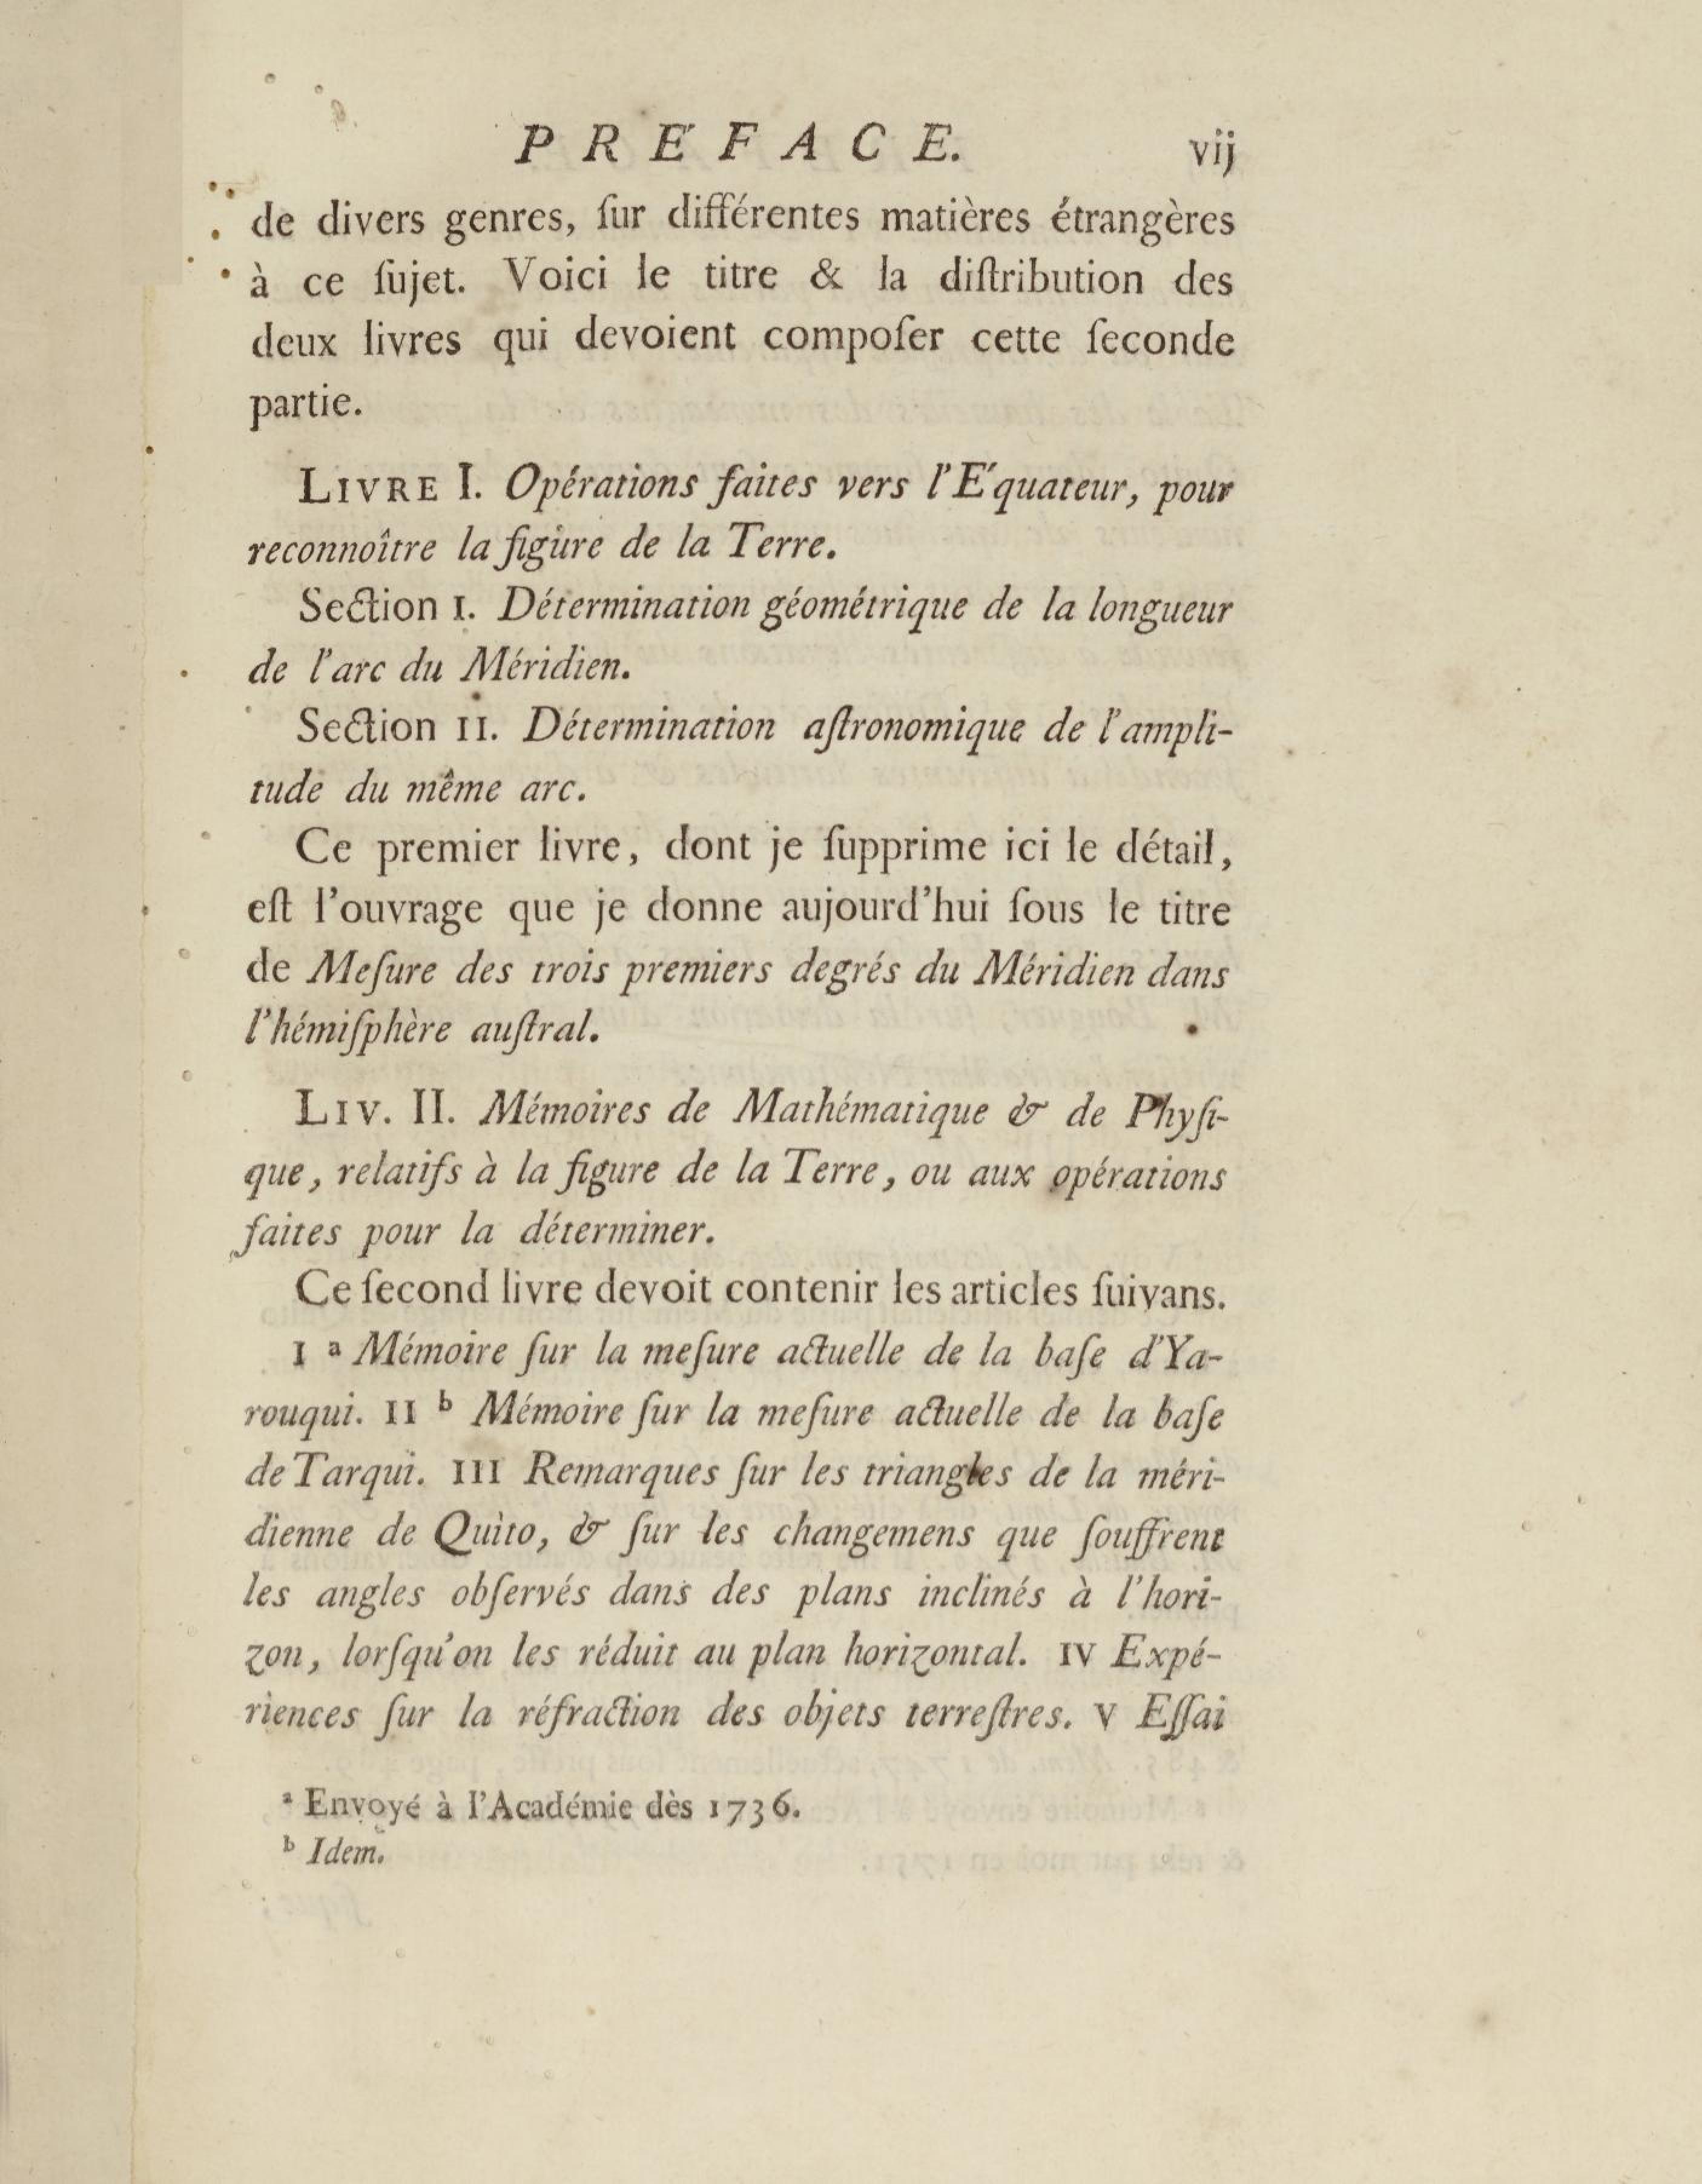 PRÉFACE. vij
de divers genres, ſur différentes matières étrangères
à ce ſujet. Voici le titre & la diſtribution des
deux livres qui devoient compoſer cette ſeconde
partie.
LIVRE I. Opérations faites vers l'Équateur, pour
reconnoître la figure de la Terre.
Section I. Détermination géométrique de la longueur
de l'arc du Méridien.
Section II. Détermination aſtronomique de l'ampli-
tude du même arc.
Ce premier livre, dont je ſupprime ici le détail,
eſt l'ouvrage que je donne aujourd'hui ſous le titre
de Meſure des trois premiers degrés du Méridien dans
l'hémiſphère auſtral.
LIV. II. Mémoires de Mathématique & de Phyſi-
que, relatifs à la figure de la Terre, ou aux opérations
faites pour la déterminer.
Ce ſecond livre devoit contenir les articles ſuivans.
I ª Mémoire ſur la meſure actuelle de la baſe d'Ya-
rouqui. II ᵇ Mémoire ſur la meſure actuelle de la baſe
de Tarqui. III Remarques ſur les triangles de la méri-
dienne de Quito, & ſur les changemens que ſouffrent
les angles obſervés dans des plans inclinés à l'hori-
zon, lorſqu'on les réduit au plan horizontal. IV Expé-
riences ſur la réfraction des objets terreſtres. V Eſſai
ª Envoyé à l'Académie dès 1736.
ᵇ Idem.